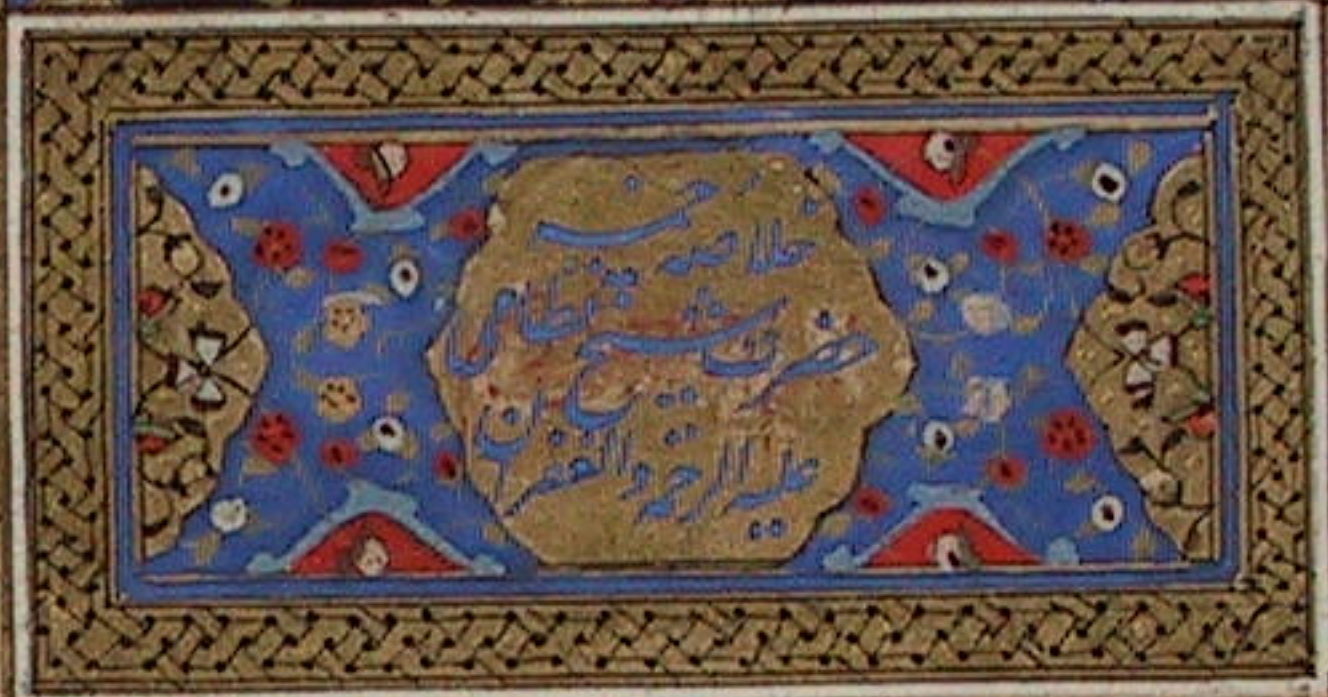 خلاصه خمسه
حضرت شیخ نظامی
علیه الرحمة والغفران